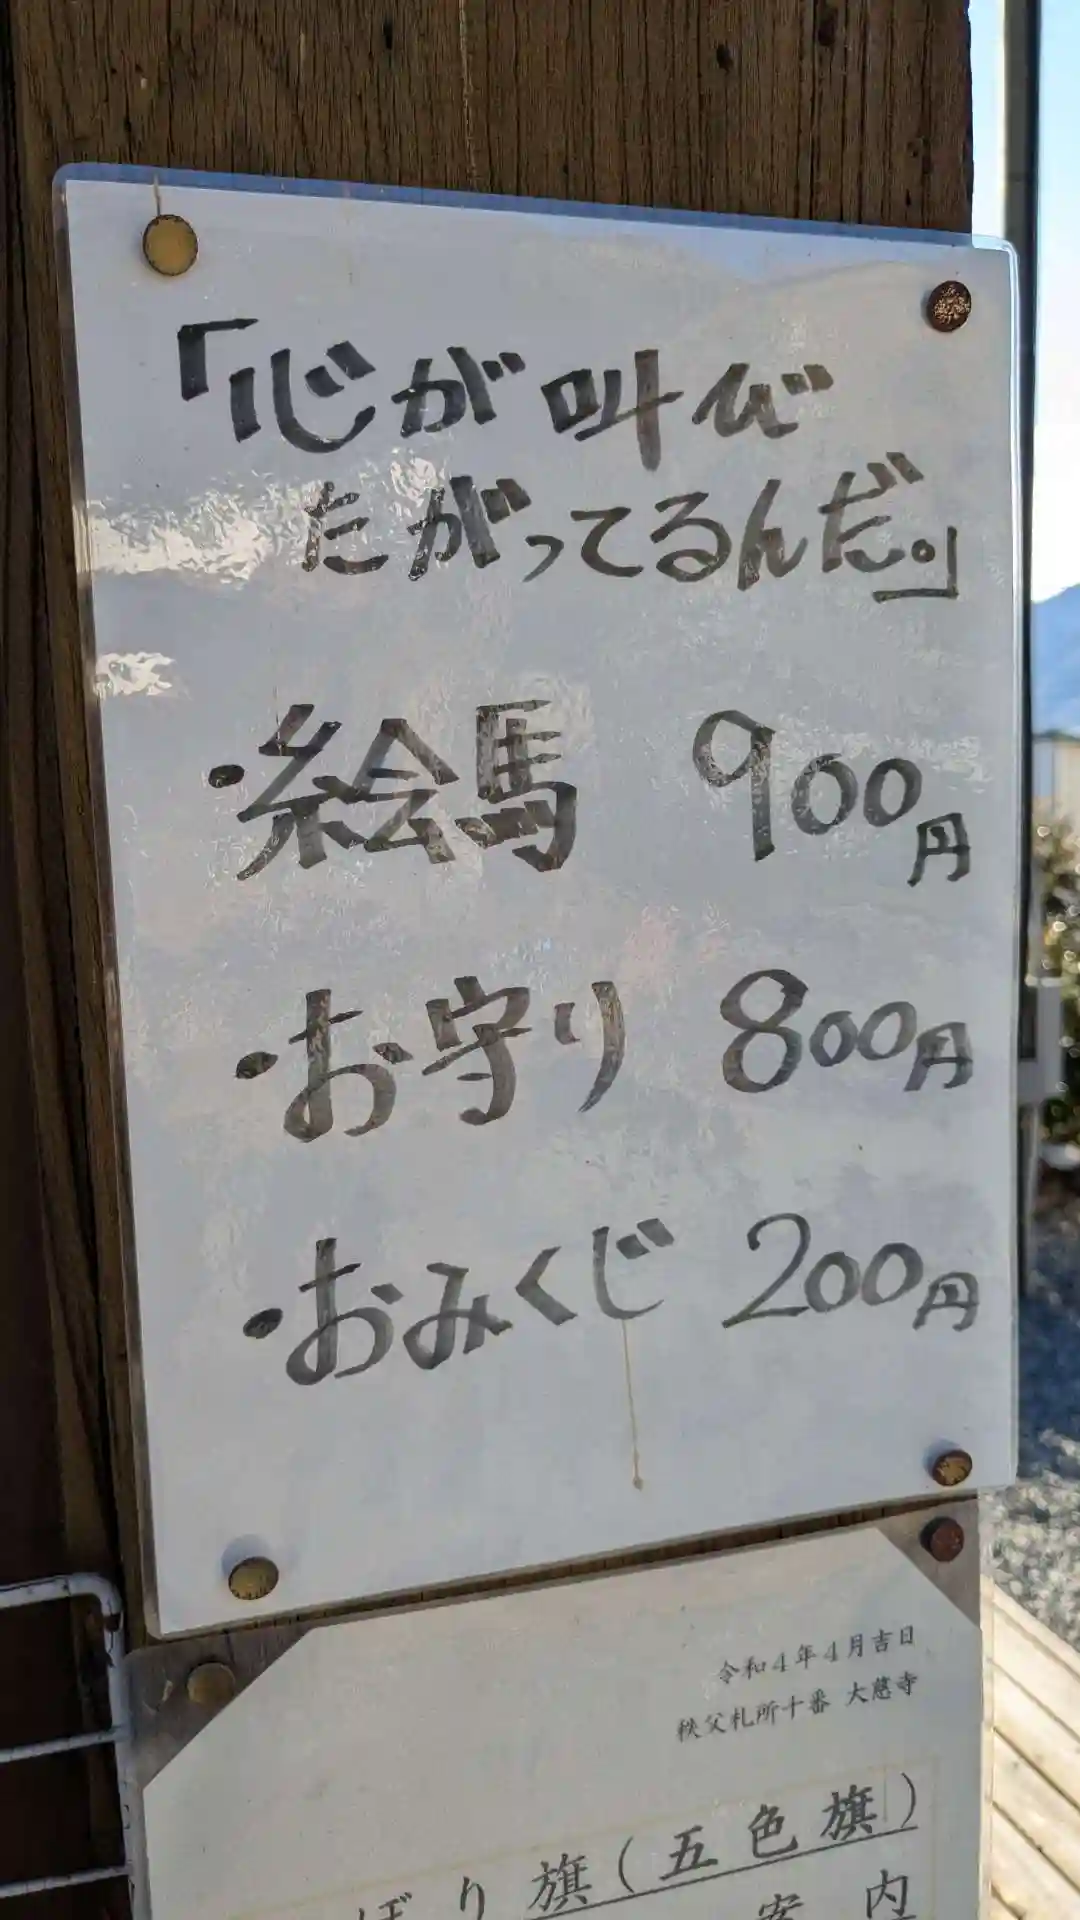 「心が叫び
たがってるんだ。」
・絵馬 900円
・お守り 800円
・おみくじ 200円
令和4年4月吉日
秩父札所十番 大慈寺
ぼり旗(五色旗)
案内